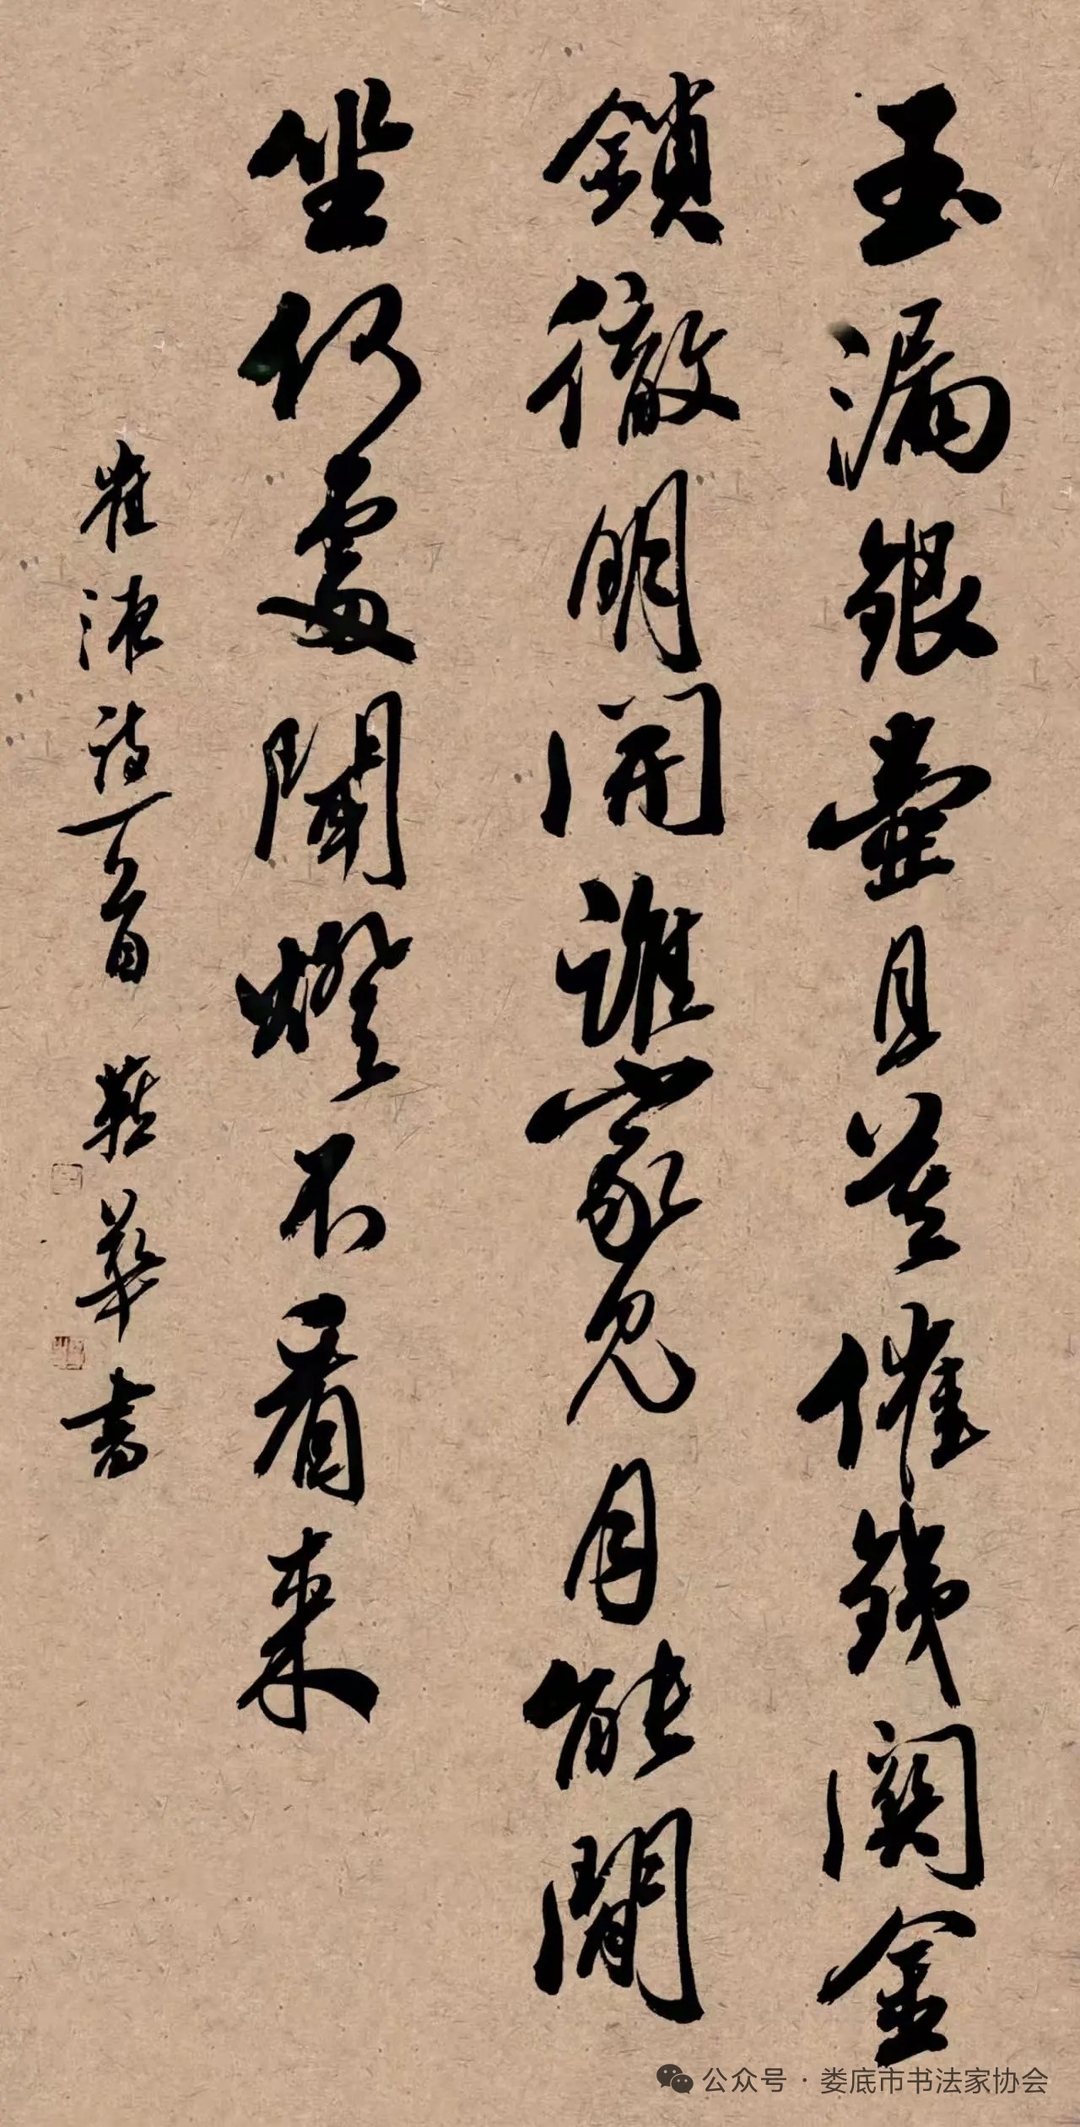 玉漏銀壺且莫催鐵關金
鎖徹明開誰家見月能閒
坐何處聞燈不看來
崔液詩一首 華書
公众号·娄底市书法家协会